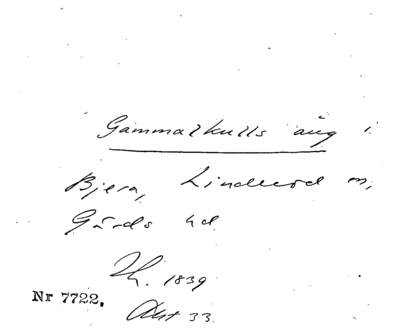 Gammalkulls äng i
Bjera, Linderöd sn,
Gärds hd
Th. 1839
Akt 33.
Nr 7722.